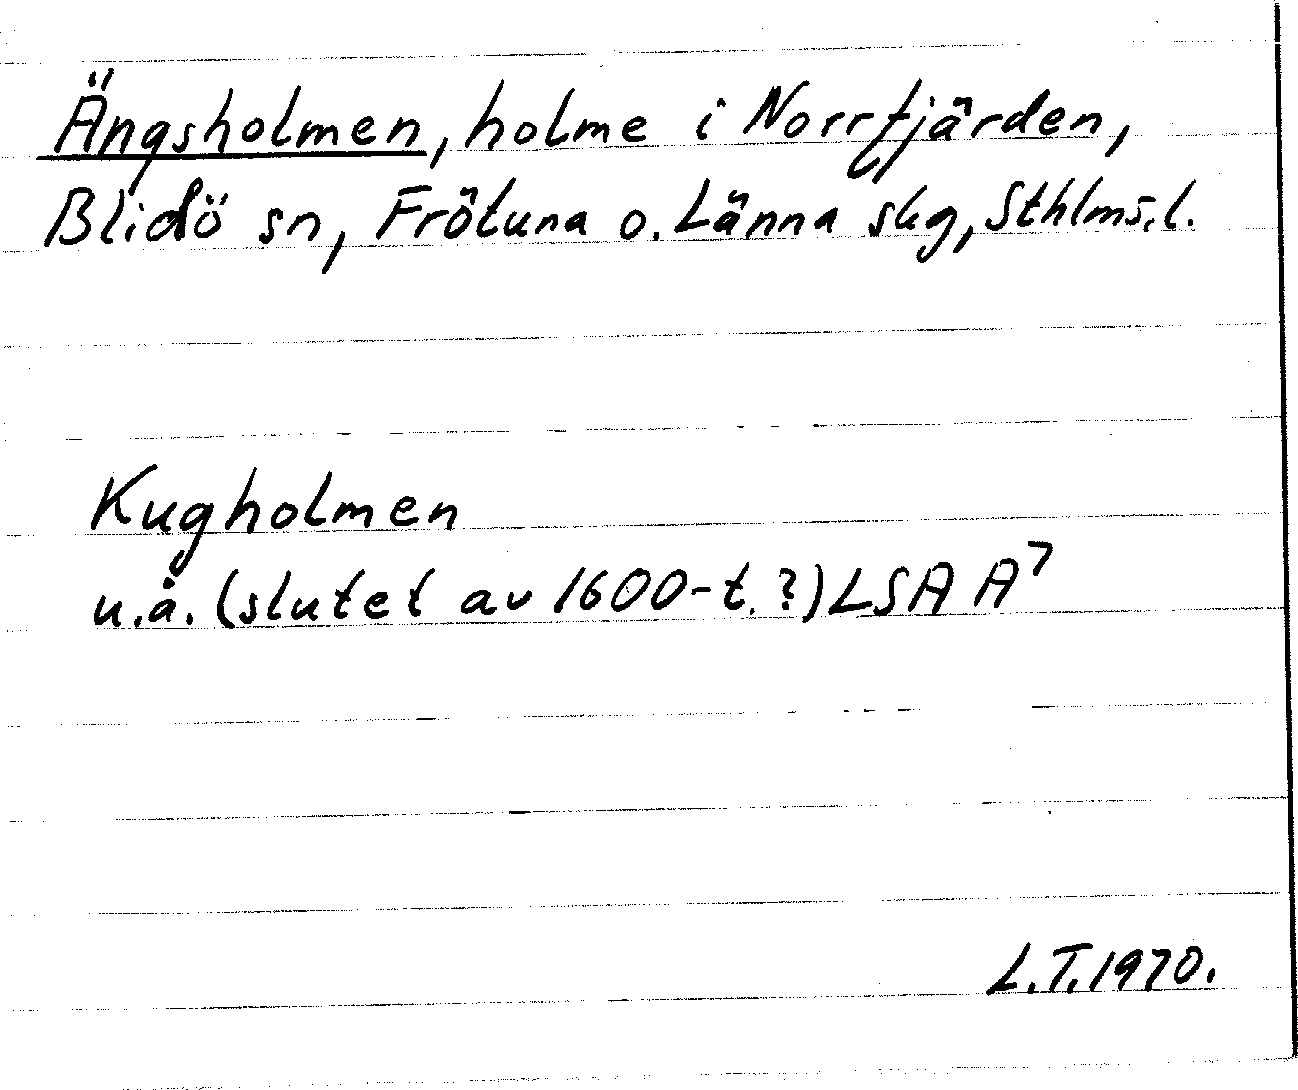 Ängsholmen, holme i Norrfjärden,
Blidö sn, Frötuna o. Länna skg, Sthlms. l.
Kugholmen
u.å. (slutet av 1600-t.?) LSA A⁷
L.T. 1970.